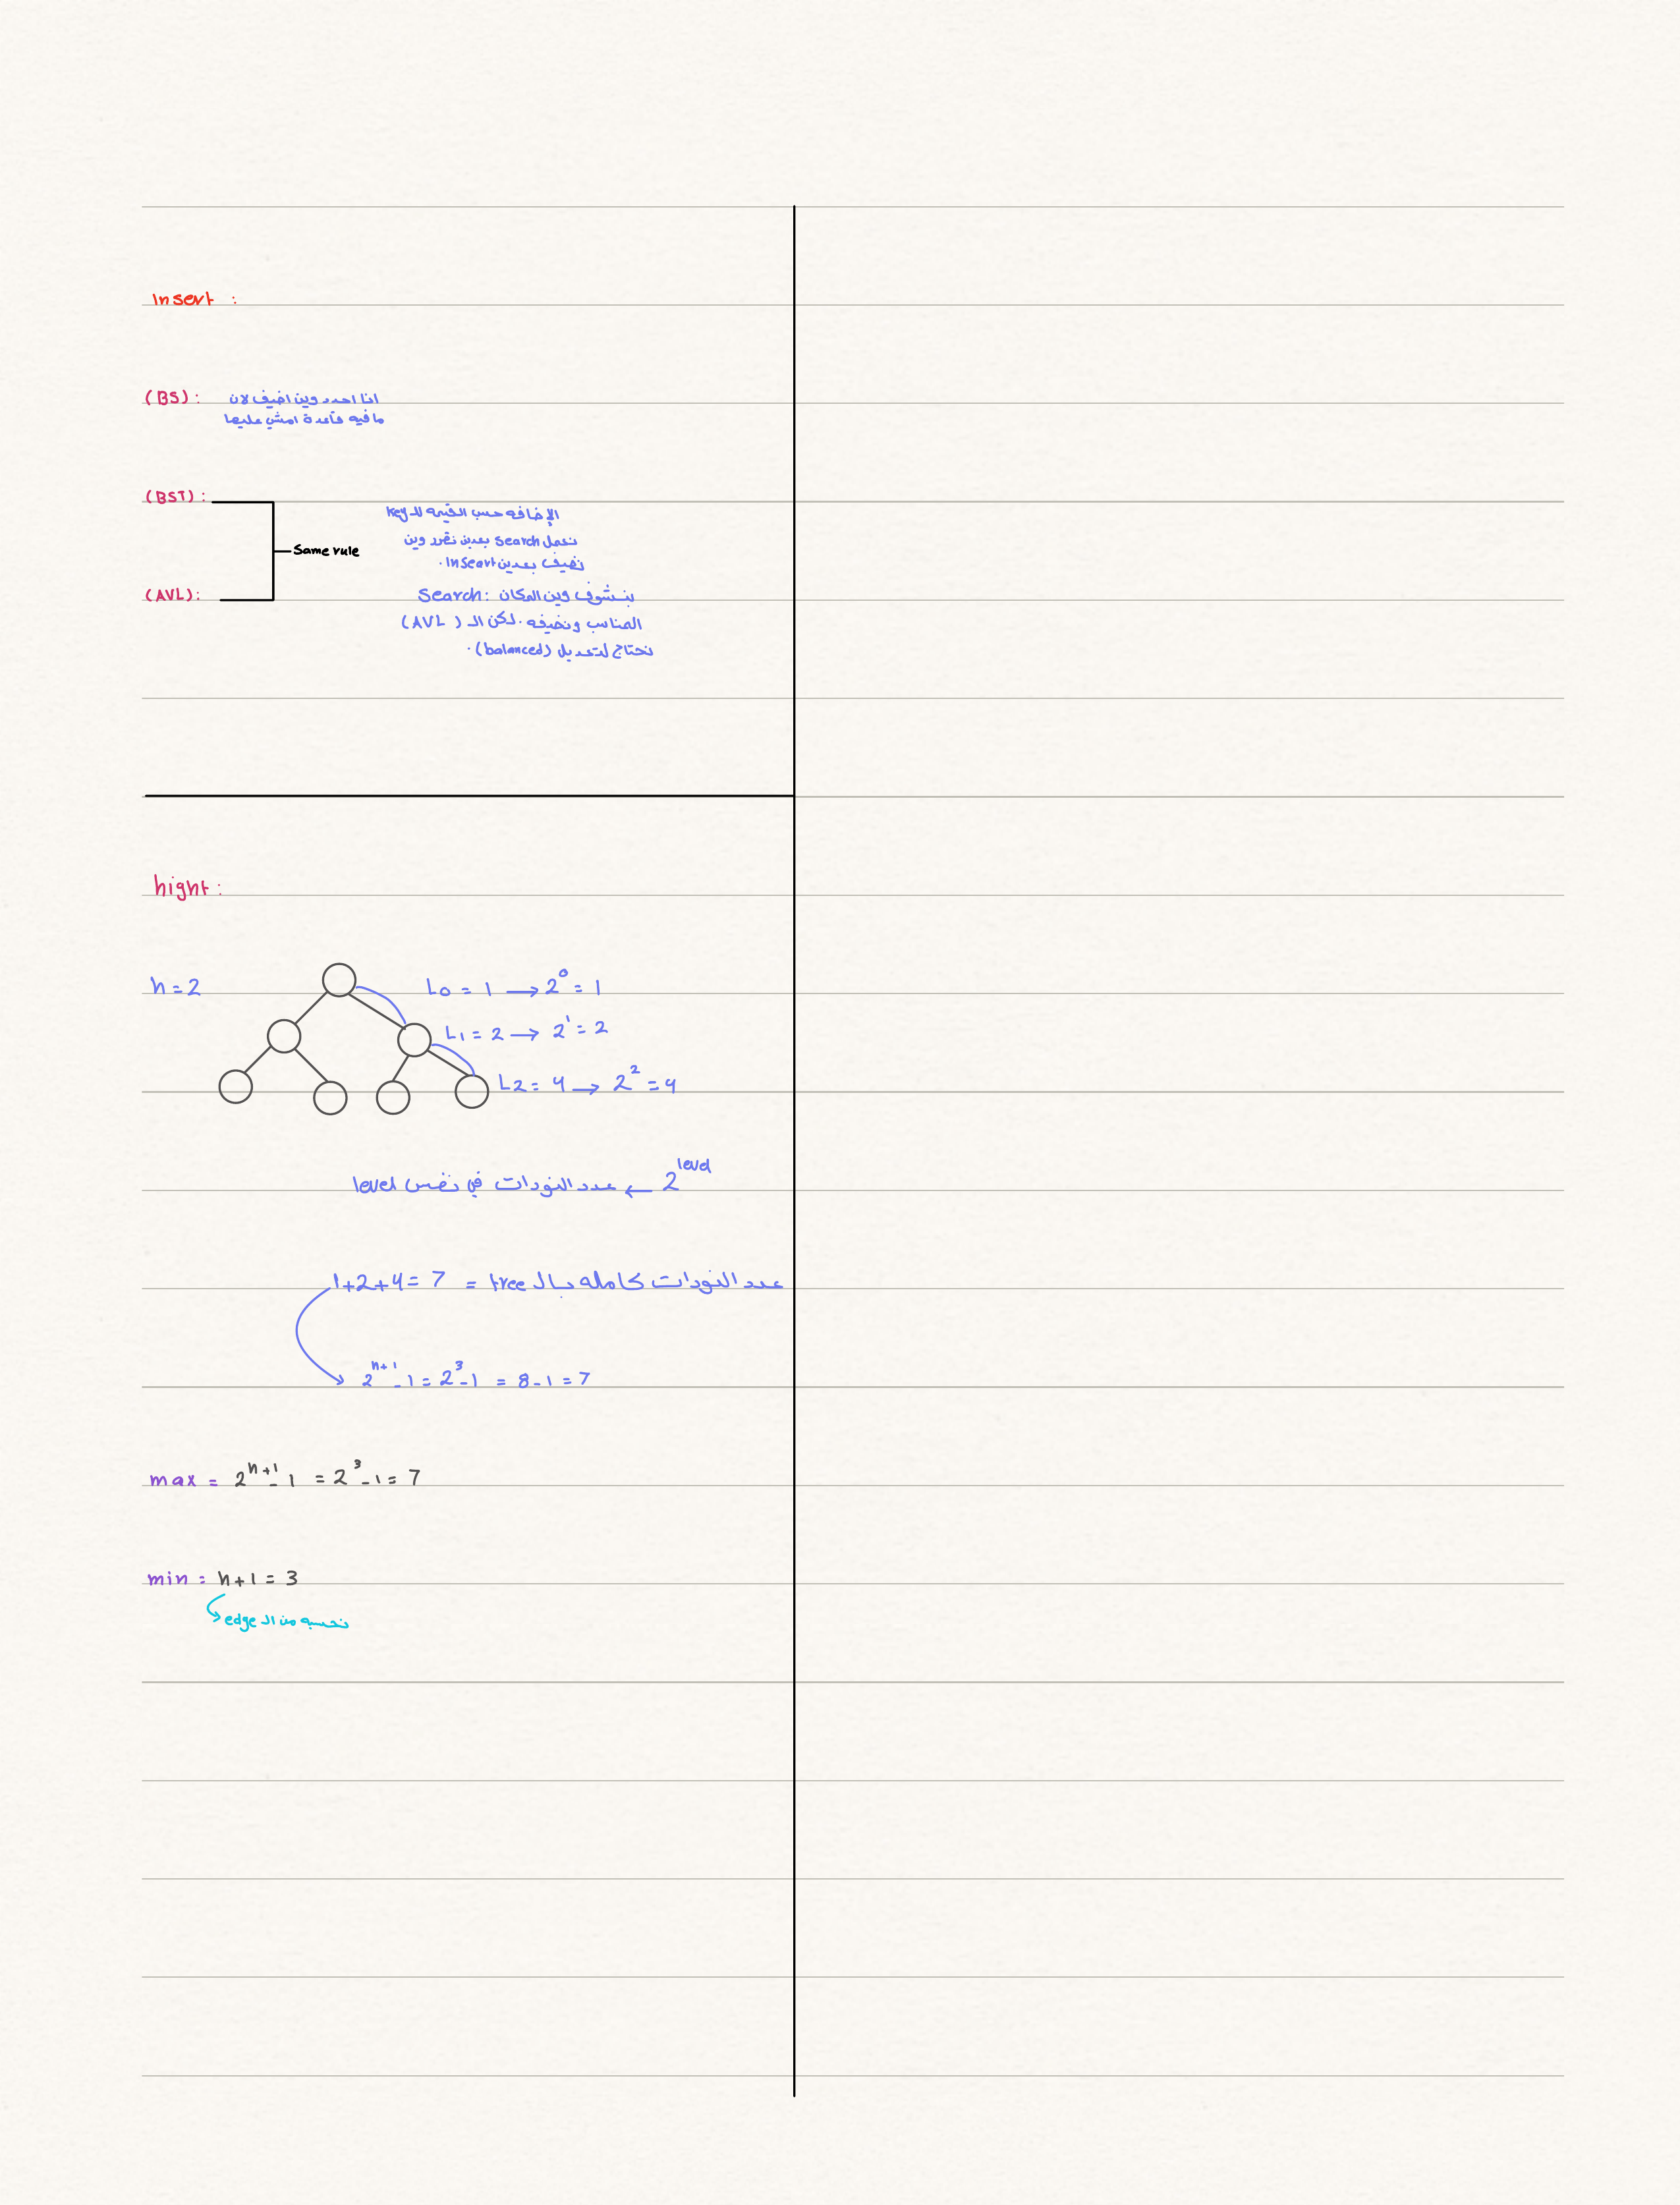 Insert :
(BS) : انا احدد وين اضيف لان
مافيه قاعدة امشي عليها
(BST) :
Same rule
(AVL) :
الإضافه حسب القيمه للـ key
نعمل search بعدين نقرر وين
نضيف بعدين Inseart .
Search : بنشوف وين المكان
المناسب ونضيفه . لكن الـ ( AVL )
نحتاج لتعديل (balanced) .
hight :
h = 2
L0 = 1 → 2⁰ = 1
L1 = 2 → 2¹ = 2
L2 = 4 → 2² = 4
2^level ← عدد النودات في نفس level
عدد النودات كامله بالـ tree = 1+2+4 = 7
2^h+1 - 1 = 2³ - 1 = 8 - 1 = 7
max = 2^h+1 - 1 = 2³ - 1 = 7
min = h + 1 = 3
نحسبه من الـ edge